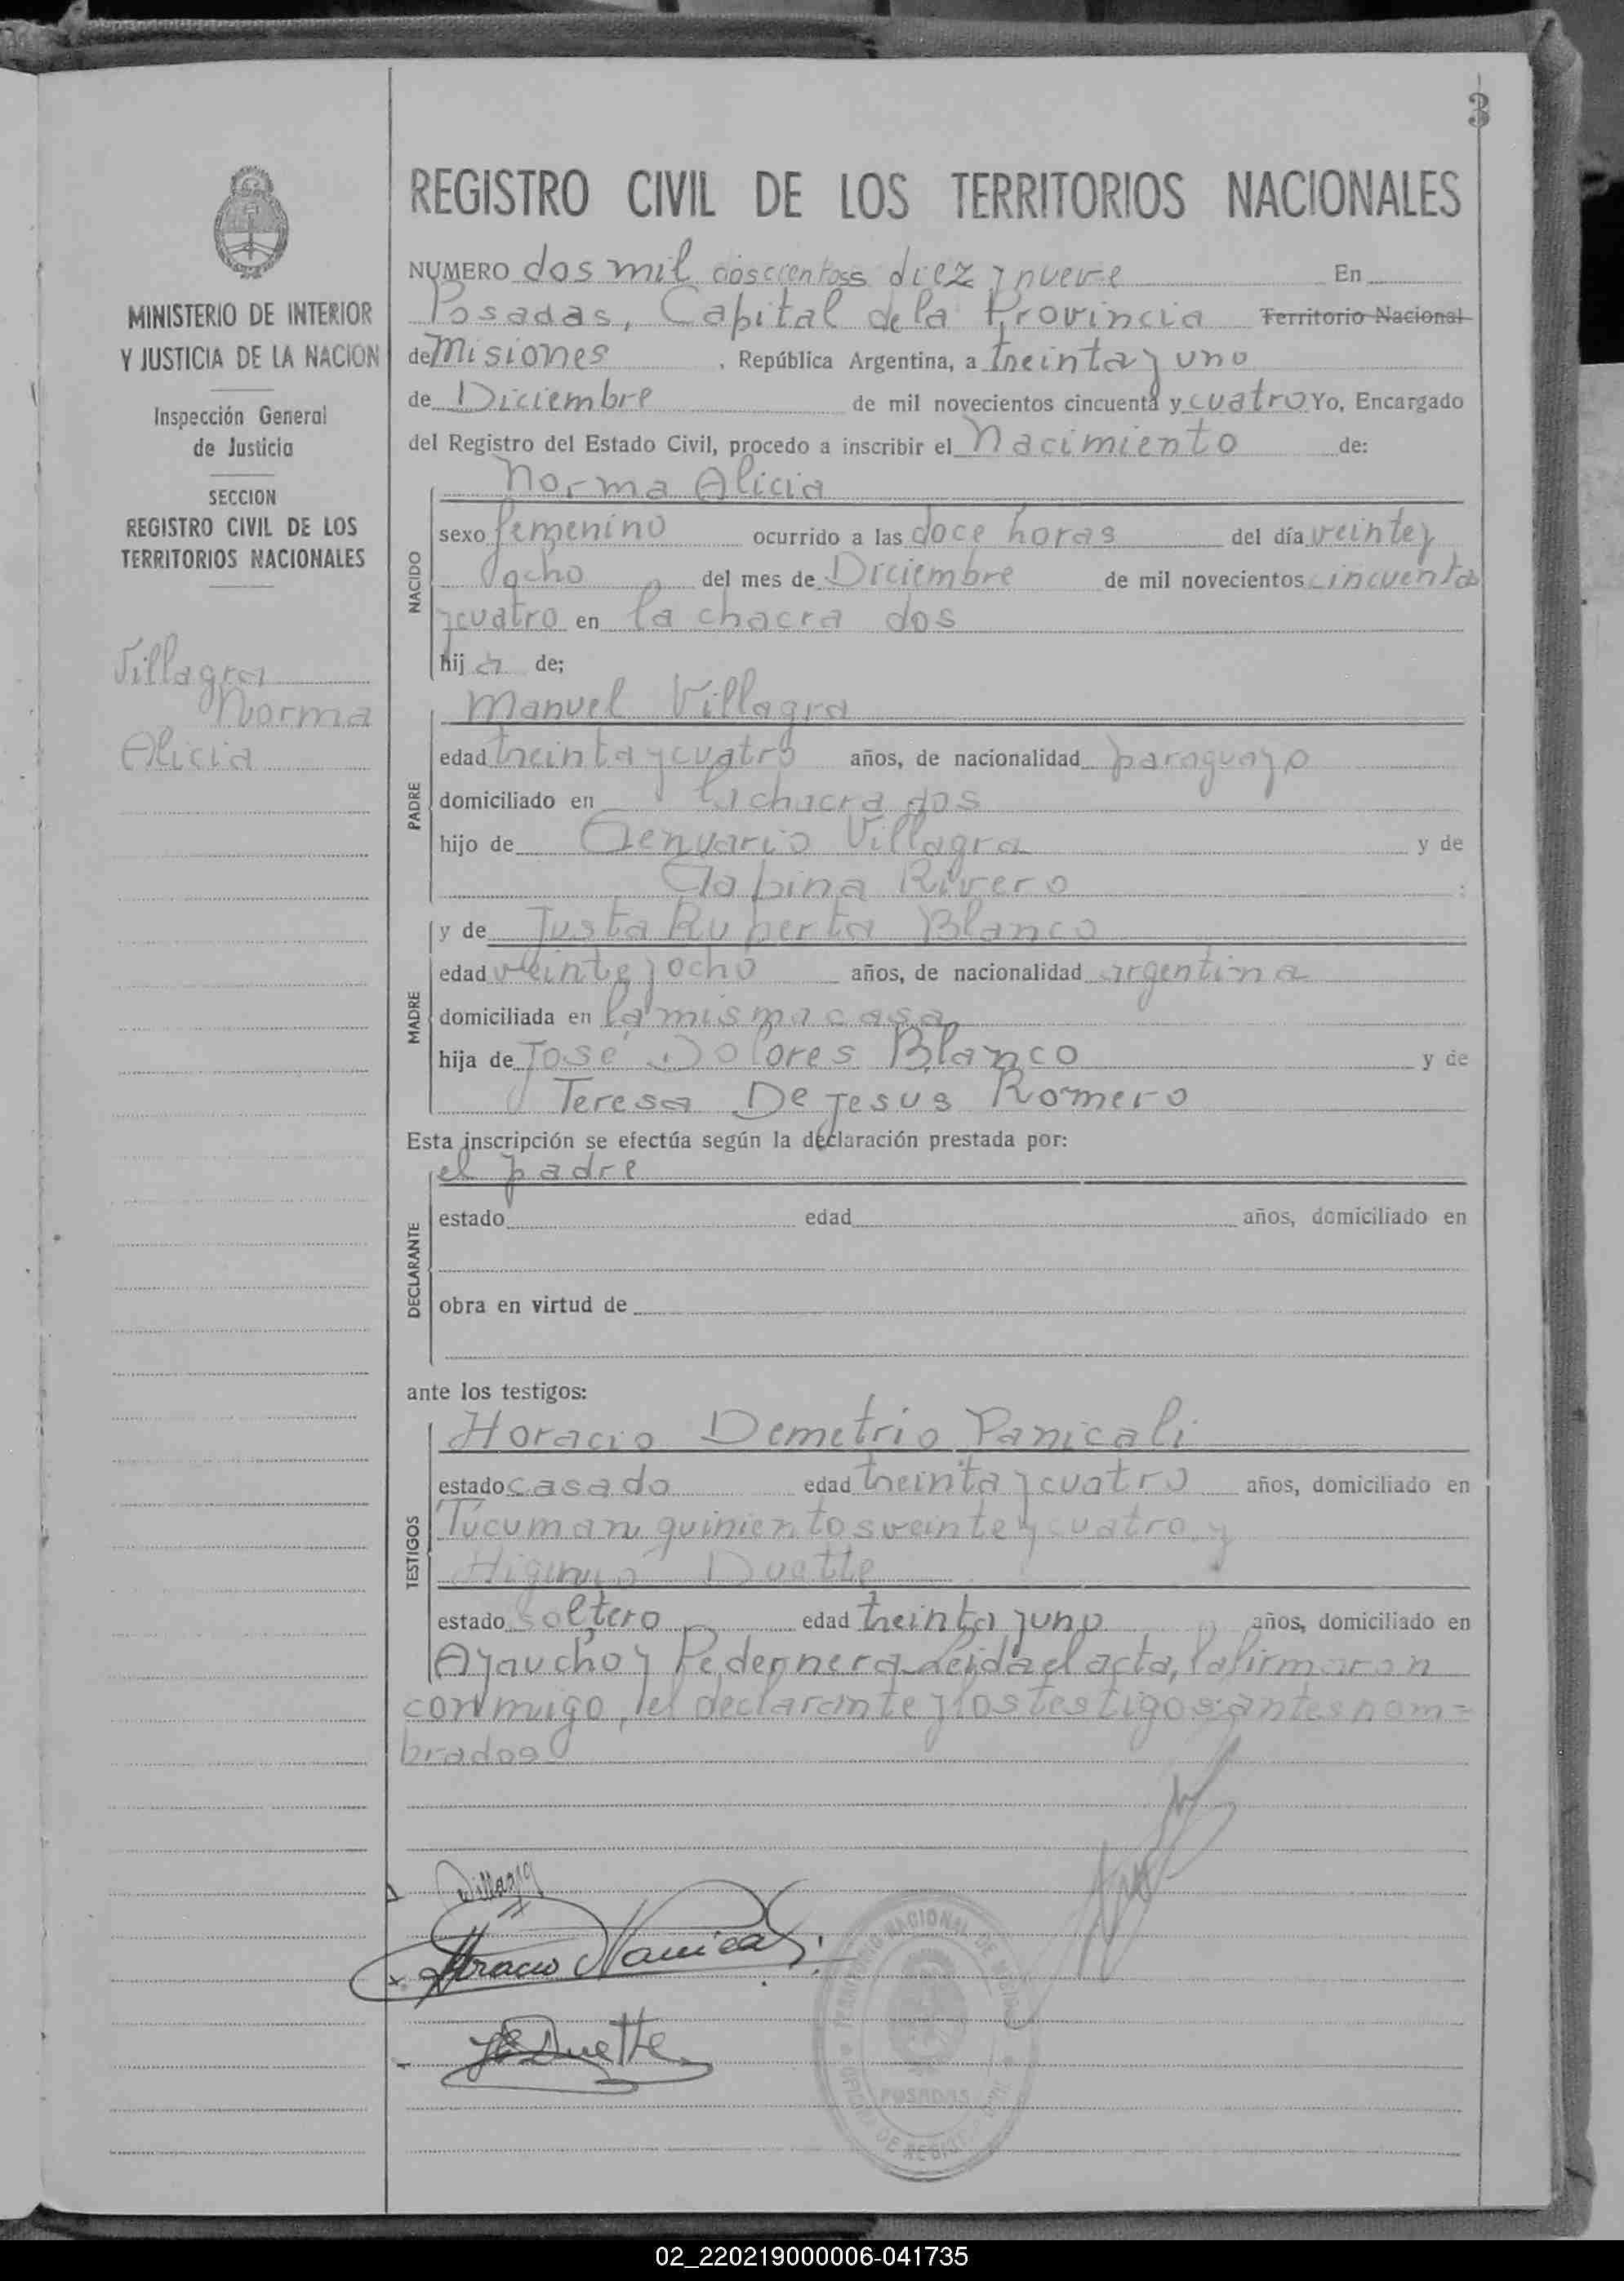 3
REGISTRO CIVIL DE LOS TERRITORIOS NACIONALES
MINISTERIO DE INTERIOR
Y JUSTICIA DE LA NACION
Inspección General
de Justicia
SECCION
REGISTRO CIVIL DE LOS
TERRITORIOS NACIONALES
Villagra
Norma
Alicia
NUMERO dos mil doscientos diez y nueve En
Posadas, Capital de la Provincia Territorio Nacional
de Misiones, República Argentina, a treinta y uno
de Diciembre de mil novecientos cincuenta y cuatro Yo, Encargado
del Registro del Estado Civil, procedo a inscribir el Nacimiento de:
NACIDO
Norma Alicia
sexo femenino ocurrido a las doce horas del día veinte y
ocho del mes de Diciembre de mil novecientos cincuenta
y cuatro en la chacra dos
hija de;
PADRE
Manuel Villagra
edad treinta y cuatro años, de nacionalidad paraguayo
domiciliado en la chacra dos
hijo de Genuario Villagra y de
Gabina Rivero :
MADRE
y de Justa Ruperta Blanco
edad veinte y ocho años, de nacionalidad argentina
domiciliada en la misma casa
hija de José Dolores Blanco y de
Teresa De Jesus Romero
Esta inscripción se efectúa según la declaración prestada por:
DECLARANTE
el padre
estado edad años, domiciliado en
obra en virtud de
ante los testigos:
TESTIGOS
Horacio Demetrio Panicali
estado casado edad treinta y cuatro años, domiciliado en
Tucuman quinientos veinte y cuatro y
Higinio Duette
estado soltero edad treinta y uno años, domiciliado en
Ayaucho y Pedernera Leida el acta, la firmaron
conmigo, el declarante y los testigos antes nom=
brados
Villagra
Horacio Panicali
H Duette
TERRITORIO NACIONAL DE MISIONES
POSADAS
02_220219000006-041735